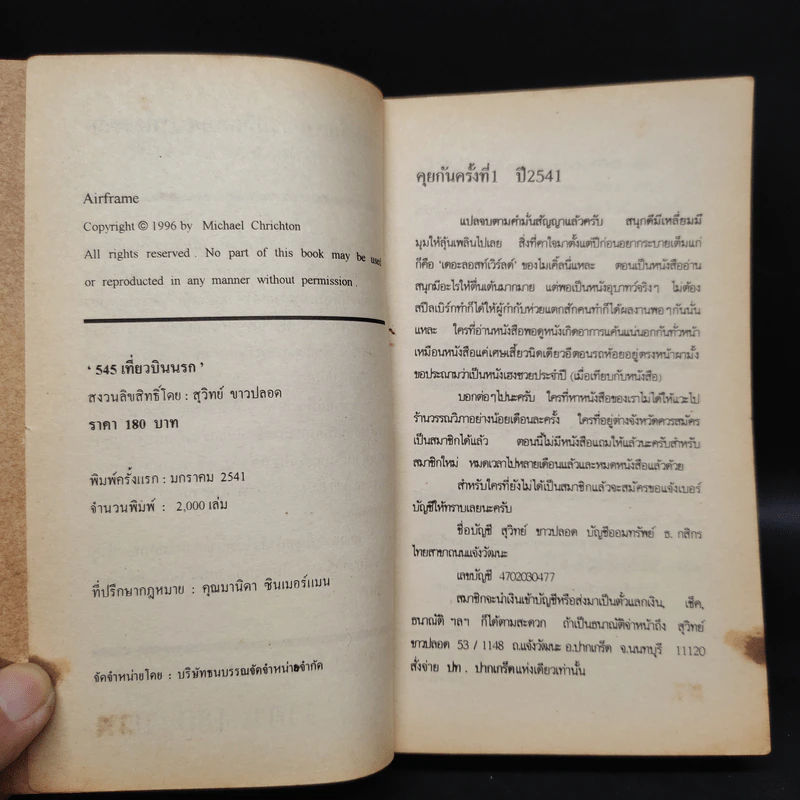 Airframe
Copyright © 1996 by Michael Chrichton
All rights reserved. No part of this book may be used
or reproduced in any manner without permission.
‘ 545 เที่ยวบินนรก ’
สงวนลิขสิทธิ์โดย : สุวิทย์ ขาวปลอด
ราคา 180 บาท
พิมพ์ครั้งแรก : มกราคม 2541
จำนวนพิมพ์ : 2,000 เล่ม
ที่ปรึกษากฎหมาย : คุณมานิดา ซินเมอร์แมน
จัดจำหน่ายโดย : บริษัทธนบรรณจัดจำหน่ายจำกัด
คุยกันครั้งที่1 ปี2541
แปลจบตามคำมั่นสัญญาแล้วครับ สนุกดีมีเหลี่ยมมี
มุมให้ลุ้นเพลินไปเลย สิ่งที่คาใจมาตั้งแต่ปีก่อนอยากระบายเต็มแก่
ก็คือ 'เดอะลอสท์เวิร์ลด์' ของไมเคิ้ลนี่แหละ ตอนเป็นหนังสืออ่าน
สนุกมีอะไรให้ตื่นเต้นมากมาย แต่พอเป็นหนังอุบาทว์จริงๆ ไม่ต้อง
สปีลเบิร์กทำก็ได้ให้ผู้กำกับห่วยแตกสักคนทำก็ได้ผลงานพอๆกันนั่น
แหละ ใครที่อ่านหนังสือพอดูหนังเกิดอาการแค้นแน่นอกกันทั่วหน้า
เหมือนหนังสือแค่เศษเสี้ยวนิดเดียวอีตอนรถห้อยอยู่ตรงหน้าผามั้ง
ขอประณามว่าเป็นหนังเฮงซวยประจำปี (เมื่อเทียบกับหนังสือ)
บอกต่อๆไปนะครับ ใครที่หาหนังสือของเราไม่ได้ให้แวะไป
ร้านวรรณวิภาอย่างน้อยเดือนละครั้ง ใครที่อยู่ต่างจังหวัดควรสมัคร
เป็นสมาชิกได้แล้ว ตอนนี้ไม่มีหนังสือแถมให้แล้วนะครับสำหรับ
สมาชิกใหม่ หมดเวลาไปหลายเดือนแล้วและหมดหนังสือแล้วด้วย
สำหรับใครที่ยังไม่ได้เป็นสมาชิกแล้วจะสมัครขอแจ้งเบอร์
บัญชีให้ทราบเลยนะครับ
ชื่อบัญชี สุวิทย์ ขาวปลอด บัญชีออมทรัพย์ ธ. กสิกร
ไทยสาขาถนนแจ้งวัฒนะ
เลขบัญชี 4702030477
สมาชิกจะนำเงินเข้าบัญชีหรือส่งมาเป็นตั๋วแลกเงิน, เช็ค,
ธนาณัติ ฯลฯ ก็ได้ตามสะดวก ถ้าเป็นธนาณัติจ่าหน้าถึง สุวิทย์
ขาวปลอด 53 / 1148 ถ.แจ้งวัฒนะ อ.ปากเกร็ด จ.นนทบุรี 11120
สั่งจ่าย ปท. ปากเกร็ดแห่งเดียวเท่านั้น